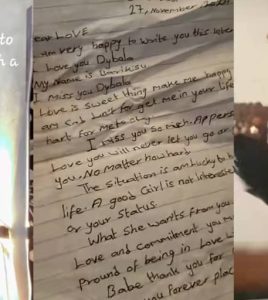 to
h a
27, November
ear LOVE
am very happy to write you this letter
Love you Dybala
My Name is
I miss you Dybala
Love is sweet thing make me happy
any Can't for get me in your life
hart for
I miss you so much. A person
Love you will never let you go or
you. No matter how hard
The situation is am lucky to
life. A good Girl is not interested
or your status.
What she wants from you
Love and commitment you
Pround of being in Love
Babe thank you for
you forever plac